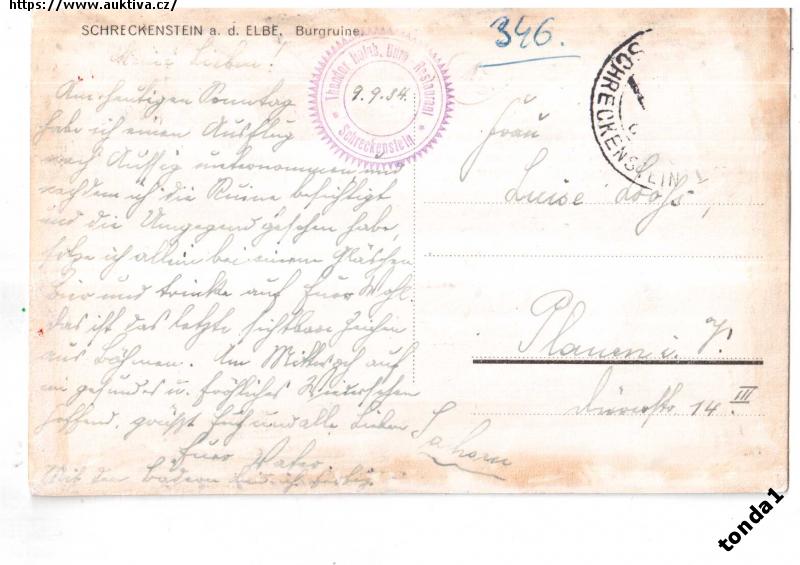 https://www.auktiva.cz/
SCHRECKENSTEIN a. d. ELBE. Burgruine.
346.
Theodor Burg-Restaurant
9.9.34.
Schreckenstein
SCHRECKENSTEIN
Meine Lieben!
Am heutigen Sonntag
habe ich einen Ausflug
nach Aussig unternommen und
nachdem ich die Ruine besichtigt
und die Umgegend gesehen habe,
sitze ich allein bei einem Gläschen
Bier und trinke auf Euer Wohl.
Das ist das letzte sichtbare Zeichen
aus Böhmen. Am Mittwoch auf
ein gesundes u. fröhliches Wiedersehen
hoffend, grüßt Euch und alle Lieben
Euer Vater
Mit den Bädern bin ich fertig.
Frau
Luise
Plauen i. V.
Dürerstr. 14 III
Sachsen
tonda1